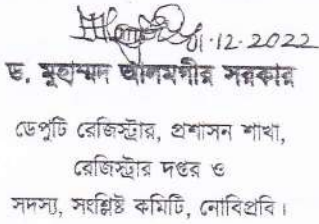 01.12.2022
ড. মুহাম্মদ আলমগীর সরকার
ডেপুটি রেজিস্ট্রার, প্রশাসন শাখা,
রেজিস্ট্রার দপ্তর ও
সদস্য, সংশ্লিষ্ট কমিটি, নোবিপ্রবি।